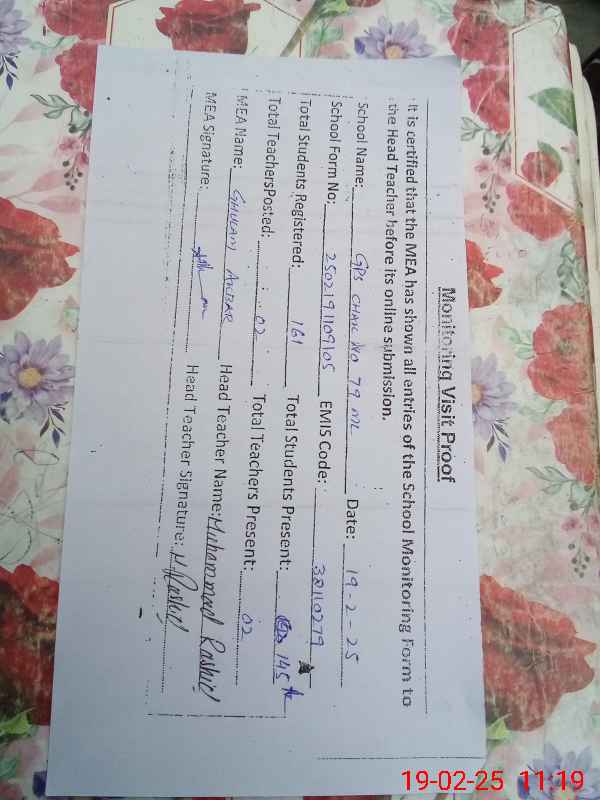 Monitoring Visit Proof
It is certified that the MEA has shown all entries of the School Monitoring Form to
the Head Teacher before its online submission.
School Name: GPS CHAK NO 79 ML Date: 19-2-25
School Form No: 2502191109105 EMIS Code: 38110279
Total Students Registered: 161 Total Students Present: 145
Total TeachersPosted: 02 Total Teachers Present: 02
MEA Name: GHULAM AKBAR Head Teacher Name: Muhammad Rashid
MEA Signature: Head Teacher Signature: M Rashid
19-02-25 11:19